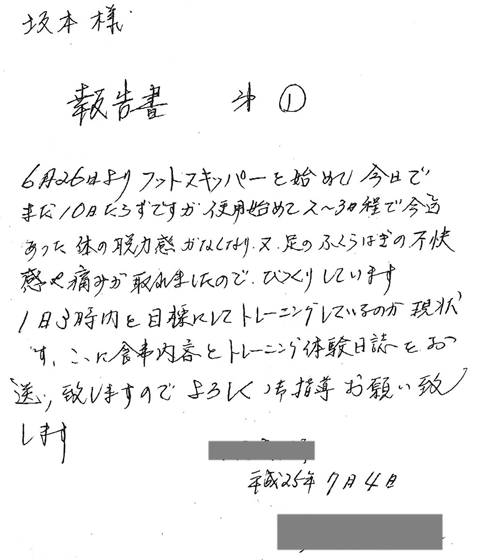 坂本様
報告書 才①
6月26日より フットスキッパーを始めて今日で
まだ10日たらずですが使用始めて2〜3日程で今迄
あった体の脱力感がなくなり、又、足のふくらはぎの不快
感や痛みが取れましたので、びっくりしています
1日3時内を目標にしてトレーニングしているのが現状
です、ここに食事内容とトレーニング体験日誌をお
送り致しますのでよろしく御指導お願い致
します
平成25年7月4日